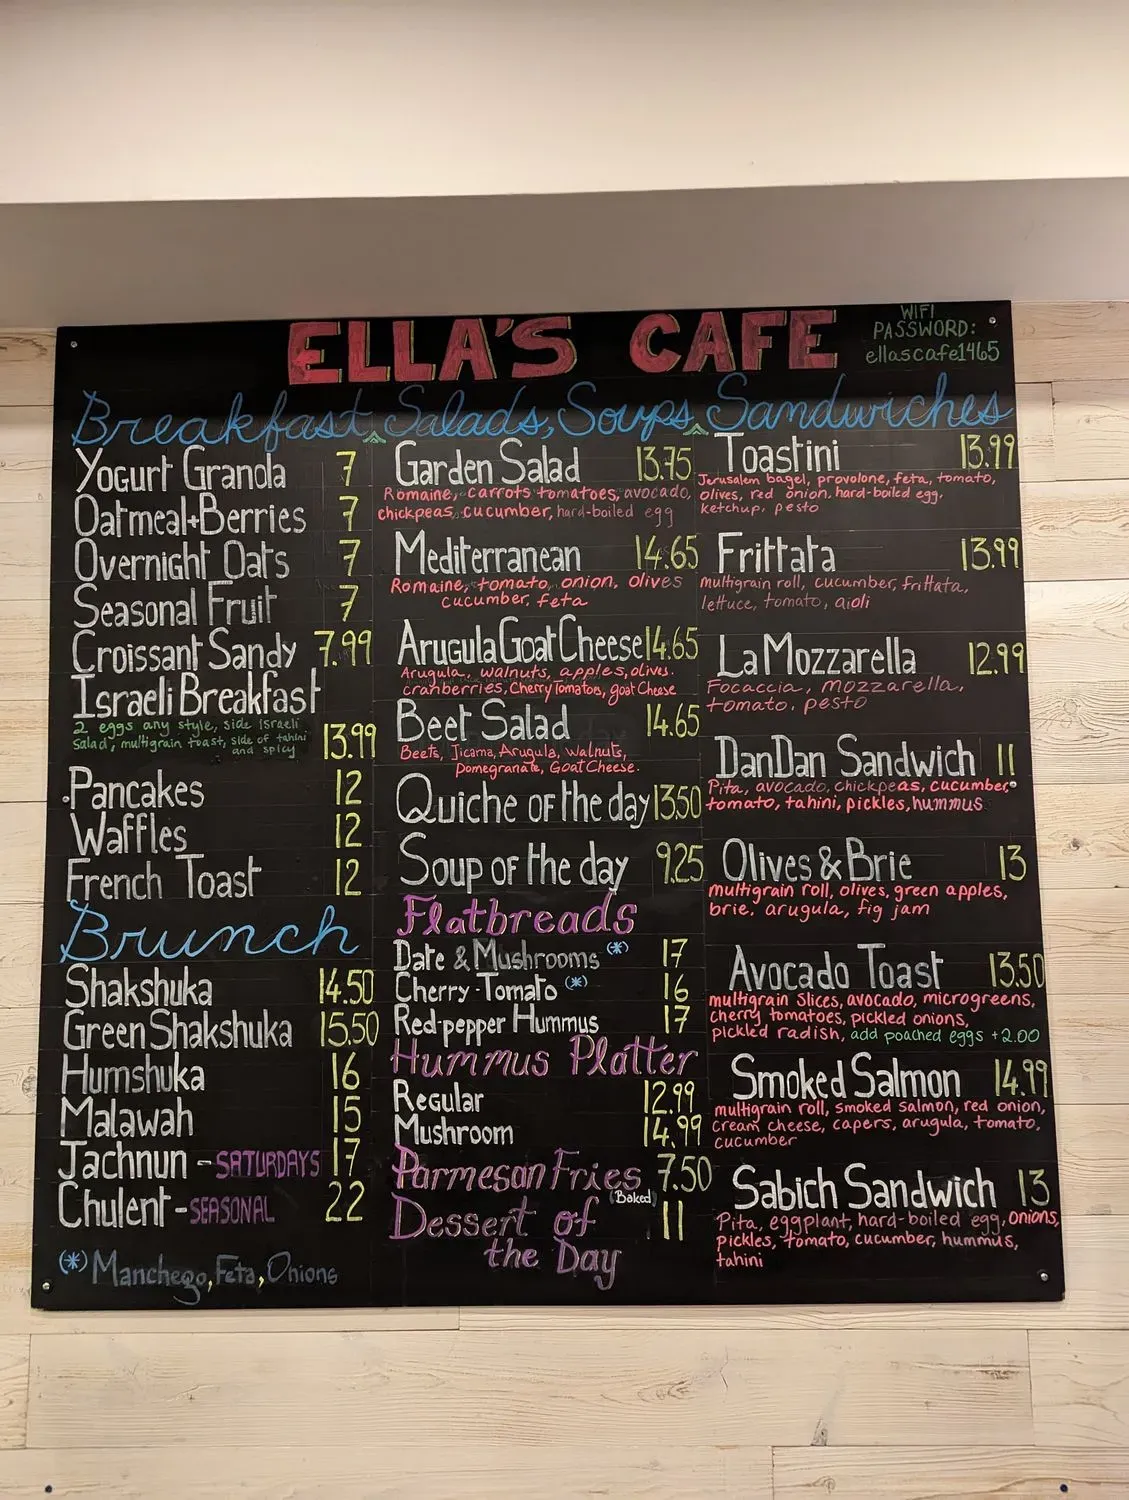 ELLA'S CAFE
WIFI
PASSWORD:
ellascafe1465
Breakfast, Salads, Soups, Sandwiches
Yogurt Granola 7
Oatmeal+Berries 7
Overnight Oats 7
Seasonal Fruit 7
Croissant Sandy 7.99
Israeli Breakfast
2 eggs any style, side Israeli
Salad, multigrain toast, side of tahini
and spicy 13.99
Pancakes 12
Waffles 12
French Toast 12
Brunch
Shakshuka 14.50
Green Shakshuka 15.50
Humshuka 16
Malawah 15
Jachnun - SATURDAYS 17
Chulent - SEASONAL 22
(*) Manchego, Feta, Onions
Garden Salad 13.75
Romaine, carrots tomatoes, avocado,
chickpeas, cucumber, hard-boiled egg
Mediterranean 14.65
Romaine, tomato, onion, olives
cucumber, feta
Arugula Goat Cheese 14.65
Arugula, walnuts, apples, olives.
cranberries, Cherry Tomatoes, goat Cheese
Beet Salad 14.65
Beets, Jicama, Arugula, Walnuts,
Pomegranate, Goat Cheese.
Quiche of the day 13.50
Soup of the day 9.25
Flatbreads
Date & Mushrooms (*) 17
Cherry-Tomato (*) 16
Red-pepper Hummus 17
Hummus Platter
Regular 12.99
Mushroom 14.99
Parmesan Fries 7.50
(Baked)
Dessert of 11
the Day
Toastini 13.99
Jerusalem bagel, provolone, feta, tomato,
olives, red onion, hard-boiled egg,
ketchup, pesto
Frittata 13.99
multigrain roll, cucumber, frittata,
lettuce, tomato, aioli
La Mozzarella 12.99
Focaccia, mozzarella,
tomato, pesto
DanDan Sandwich 11
Pita, avocado, chickpeas, cucumber,
tomato, tahini, pickles, hummus
Olives & Brie 13
multigrain roll, olives, green apples,
brie, arugula, fig jam
Avocado Toast 13.50
multigrain slices, avocado, microgreens,
cherry tomatoes, pickled onions,
pickled radish, add poached eggs +2.00
Smoked Salmon 14.99
multigrain roll, smoked salmon, red onion,
cream cheese, capers, arugula, tomato,
cucumber
Sabich Sandwich 13
Pita, eggplant, hard-boiled egg, onions,
pickles, tomato, cucumber, hummus,
tahini